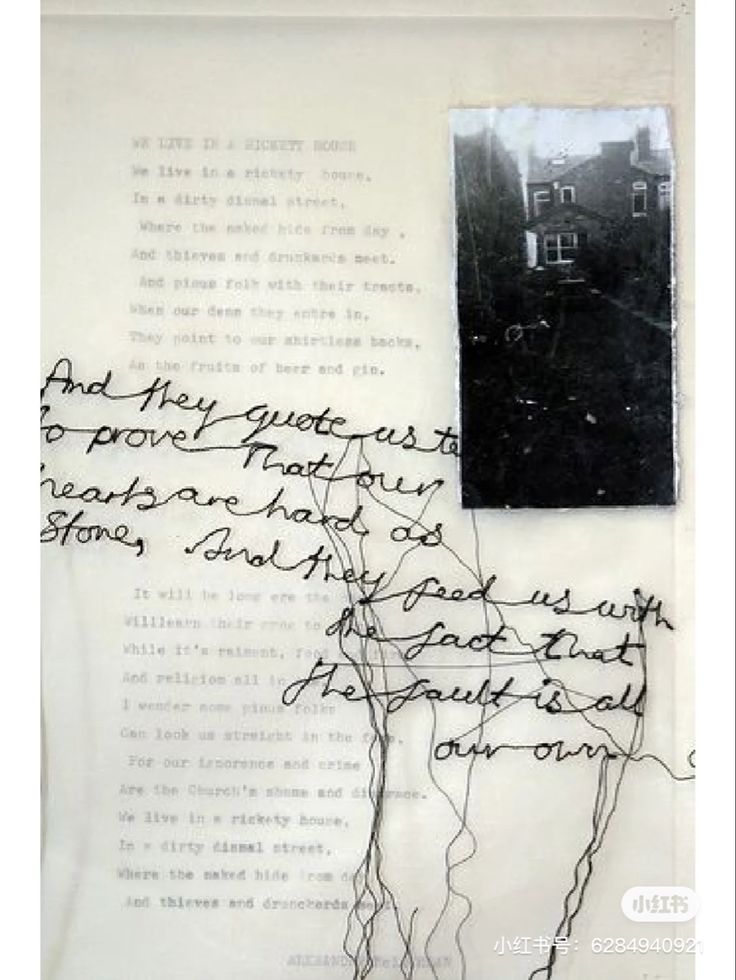 WE LIVE IN A RICKETY HOUSE
We live in a rickety house,
In a dirty dismal street,
Where the naked hide from day,
And thieves and drunkards meet.
And pious folk with their tracts,
When our dens they entre in,
They point to our shirtless backs,
As the fruits of beer and gin.
And they quote us te
to prove That our
hearts are hard as
Stone, And they feed us with
the fact that
the fault is all
our own
It will be long ere the
Willlearn their
to
While it's raiment, food
And religion all
I wonder some pious folks
Can look us straight in the
For our ignorence and crime
Are the Church's shame and
We live in a rickety house,
In a dirty dismal street,
Where the naked hide from day
And thieves and drunckards
小红书
小红书号：628494092